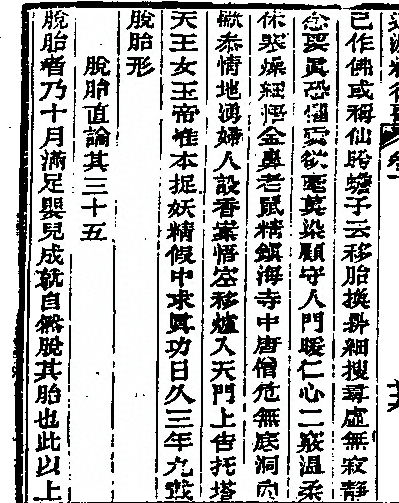 已作佛或稱仙蟾子云移胎換鼎細搜尋虛無寂靜
念要眞恐懼欲毫莫染顧守人門暖仁心二竅溫柔
休燥細悟金鼻老鼠精鎮海寺中唐僧危無底洞內
情地湧婦人設香案悟空移爐入天門上告托塔
天王女玉帝惟本捉妖精假中求眞功日久三年九載
脫胎形
脫胎直論其三十五
脫胎者乃十月滿足嬰兒成就自然脫其胎也此以上